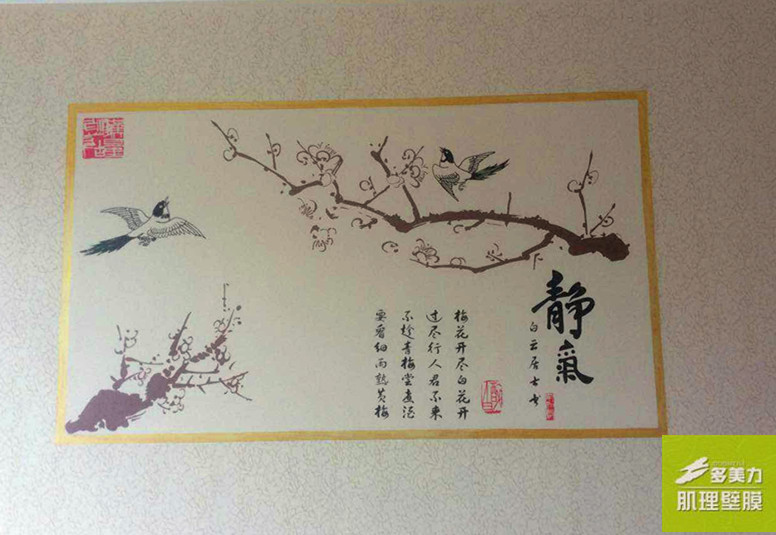 静氣
白云居士书
梅花开尽白花开
过尽行人君不来
不趁青梅尝煮酒
要看细雨熟黄梅
多美力
肌理壁膜